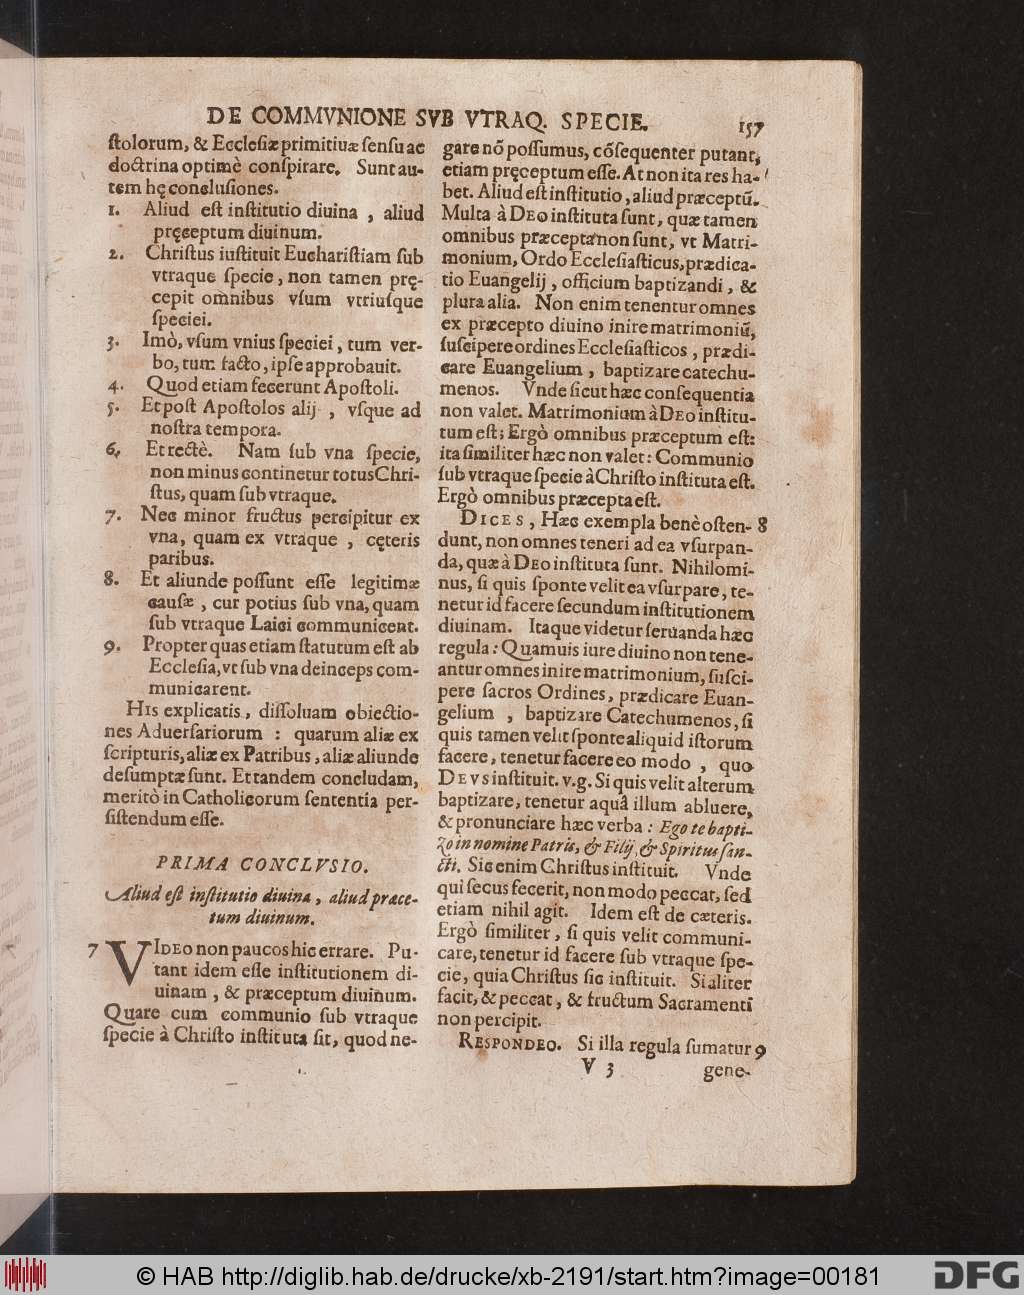 DE COMMVNIONE SVB VTRAQ. SPECIE. 157
ſtolorum, & Eccleſiæ primitiuæ ſenſu ac
doctrina optimè conſpirare. Sunt au-
tem hę concluſiones.
1. Aliud eſt inſtitutio diuina, aliud
pręceptum diuinum.
2. Chriſtus iuſtituit Euchariſtiam ſub
vtraque ſpecie, non tamen prę-
cepit omnibus vſum vtriuſque
ſpeciei.
3. Imò, vſum vnius ſpeciei, tum ver-
bo, tum facto, ipſe approbauit.
4. Quod etiam fecerunt Apoſtoli.
5. Et poſt Apoſtolos alij, vſque ad
noſtra tempora.
6. Et rectè. Nam ſub vna ſpecie,
non minus continetur totus Chri-
ſtus, quam ſub vtraque.
7. Nec minor fructus percipitur ex
vna, quam ex vtraque, cęteris
paribus.
8. Et aliunde poſſunt eſſe legitimæ
cauſæ, cur potius ſub vna, quam
ſub vtraque Laici communicent.
9. Propter quas etiam ſtatutum eſt ab
Eccleſia, vt ſub vna deinceps com-
municarent.
HIS explicatis, diſſoluam obiectio-
nes Aduerſariorum : quarum aliæ ex
ſcripturis, aliæ ex Patribus, aliæ aliunde
deſumptæ ſunt. Et tandem concludam,
meritò in Catholicorum ſententia per-
ſiſtendum eſſe.
PRIMA CONCLVSIO.
Aliud eſt inſtitutio diuina, aliud præce-
tum diuinum.
7 VIDEO non paucos hic errare. Pu-
tant idem eſſe inſtitutionem di-
uinam, & præceptum diuinum.
Quare cum communio ſub vtraque
ſpecie à Chriſto inſtituta ſit, quod ne-
gare nō poſſumus, cōſequenter putant,
etiam pręceptum eſſe. At non ita res ha-
bet. Aliud eſt inſtitutio, aliud præceptū.
Multa à DEO inſtituta ſunt, quæ tamen
omnibus præcepta non ſunt, vt Matri-
monium, Ordo Eccleſiaſticus, prædica-
tio Euangelij, officium baptizandi, &
plura alia. Non enim tenentur omnes
ex præcepto diuino inire matrimoniū,
ſuſcipere ordines Eccleſiaſticos, prædi-
care Euangelium, baptizare catechu-
menos. Vnde ſicut hæc conſequentia
non valet. Matrimonium à DEO inſtitu-
tum eſt; Ergò omnibus præceptum eſt:
ita ſimiliter hæc non valet: Communio
ſub vtraque ſpecie à Chriſto inſtituta eſt.
Ergò omnibus præcepta eſt.
DICES, Hæc exempla benè oſten- 8
dunt, non omnes teneri ad ea vſurpan-
da, quæ à DEO inſtituta ſunt. Nihilomi-
nus, ſi quis ſponte velit ea vſurpare, te-
netur id facere ſecundum inſtitutionem
diuinam. Itaque videtur ſeruanda hæc
regula: Quamuis iure diuino non tene-
antur omnes inire matrimonium, ſuſci-
pere ſacros Ordines, prædicare Euan-
gelium, baptizare Catechumenos, ſi
quis tamen velit ſponte aliquid iſtorum
facere, tenetur facere eo modo, quo
DEVS inſtituit. v.g. Si quis velit alterum
baptizare, tenetur aquâ illum abluere,
& pronunciare hæc verba: Ego te bapti-
zo in nomine Patris, & Filij, & Spiritus ſan-
cti. Sic enim Chriſtus inſtituit. Vnde
qui ſecus fecerit, non modo peccat, ſed
etiam nihil agit. Idem eſt de cæteris.
Ergò ſimiliter, ſi quis velit communi-
care, tenetur id facere ſub vtraque ſpe-
cie, quia Chriſtus ſic inſtituit. Si aliter
facit, & peccat, & fructum Sacramenti
non percipit.
RESPONDEO. Si illa regula ſumatur 9
V 3 gene-
© HAB http://diglib.hab.de/drucke/xb-2191/start.htm?image=00181
DFG